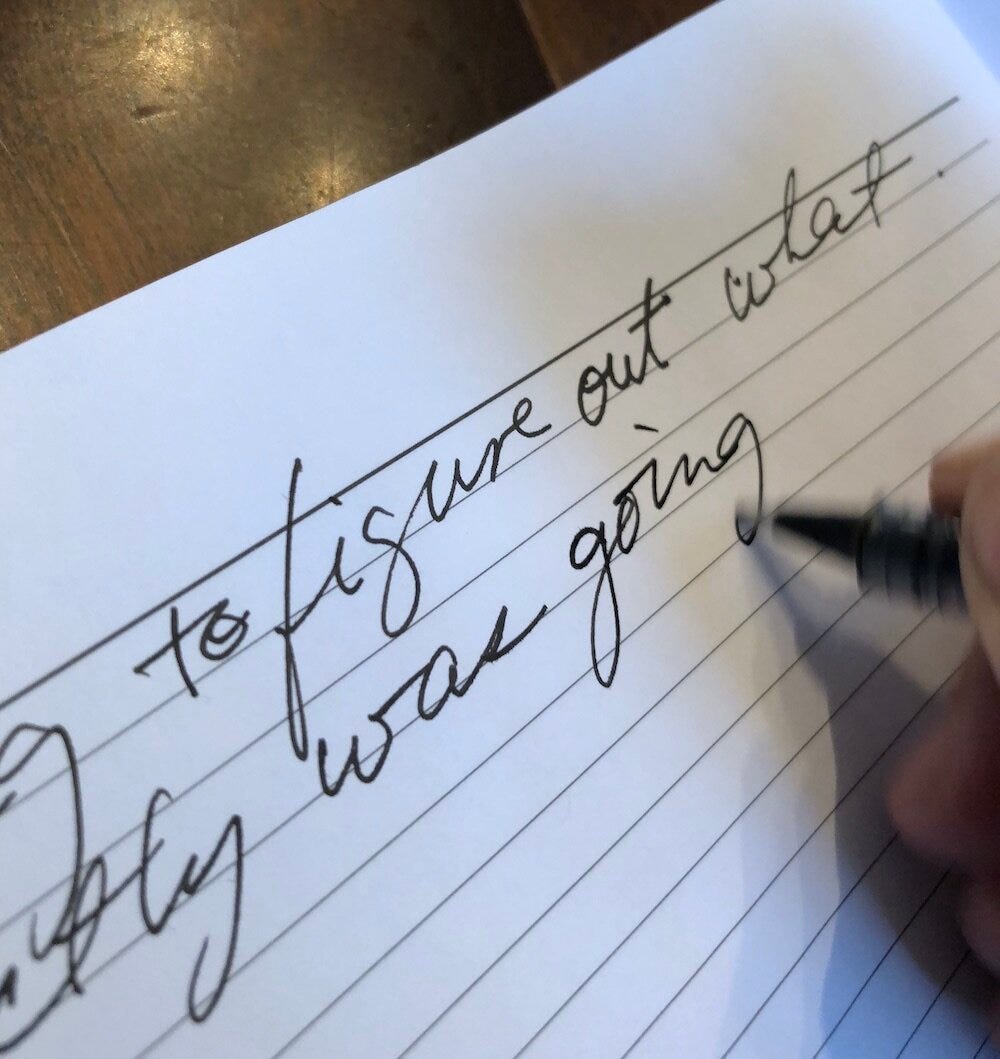 to figure out what
was going